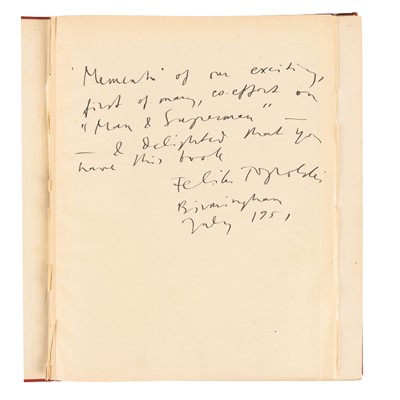 'Memento' of our exciting,
first of many, co-effort on
"Man & Superman"
— & delighted that you
have this book
Feliks Topolski
Birmingham
July 1951